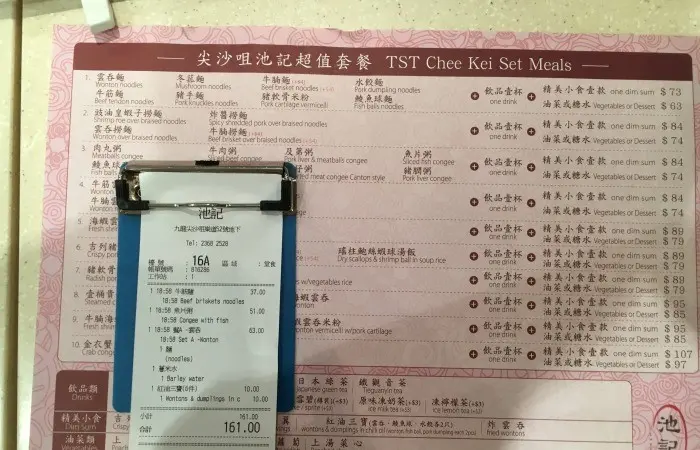 尖沙咀池記超值套餐 TST Chee Kei Set Meals
1. 雲吞麵 冬菇麵 牛腩麵(+$4) 水餃麵
Wonton noodles Mushroom noodles Beef brisket noodles (+$4) Pork dumpling noodles
牛筋麵 豬手麵 豬軟骨米粉 鯪魚球麵
Beef tendon noodles Pork knuckles noodles Pork cartilage vermicelli Fish balls noodles
飲品壹杯 one drink
精美小食壹款 one dim sum $ 73
油菜或糖水 Vegetables or Dessert $ 63
2. 豉油皇蝦子撈麵 炸醬撈麵
Shrimp roe over braised noodles Spicy shredded pork over braised noodles
雲吞撈麵 牛腩撈麵(+$4)
Wonton over braised noodles Beef brisket over braised noodles (+$4)
飲品壹杯 one drink
精美小食壹款 one dim sum $ 84
油菜或糖水 Vegetables or Dessert $ 74
3. 肉丸粥 牛肉粥 及第粥 魚片粥
Meatballs congee Sliced beef congee Pork liver & meatballs congee Sliced fish congee
鯪魚球
Fish balls
子粥 豬膶粥
meat congee Canton style Pork liver congee
飲品壹杯 one drink
精美小食壹款 one dim sum $ 84
油菜或糖水 Vegetables or Dessert $ 74
4. 牛筋
Wonton
牛腩
飲品壹杯 one drink
精美小食壹款 one dim sum $ 84
油菜或糖水 Vegetables or Dessert $ 74
5. 海蝦
Fresh
飲品壹杯 one drink
精美小食壹款 one dim sum $ 89
油菜或糖水 Vegetables or Dessert $ 79
6. 吉列豬
Crispy
瑤柱鮑絲蝦球湯飯
Dry scallops & shrimp ball in soup rice
飲品壹杯 one drink
精美小食壹款 one dim sum $ 89
油菜或糖水 Vegetables or Dessert $ 79
7. 豬軟骨
w/vegetables rice
飲品壹杯 one drink
精美小食壹款 one dim sum $ 89
油菜或糖水 Vegetables or Dessert $ 79
8. 壹桶
Steamed
海蝦雲吞
wonton
飲品壹杯 one drink
精美小食壹款 one dim sum $ 95
油菜或糖水 Vegetables or Dessert $ 85
9. 牛腩海
Fresh
蝦雲吞米粉
wonton vermicelli w/pork cartilage
飲品壹杯 one drink
精美小食壹款 one dim sum $ 95
油菜或糖水 Vegetables or Dessert $ 85
10. 金衣蟹
Crab
飲品壹杯 one drink
精美小食壹款 one dim sum $ 107
油菜或糖水 Vegetables or Dessert $ 97
池記
九龍尖沙咀樂道52號地下
Tel: 2368 2528
檯號 : 16A 區域 : 堂食
帳單號碼 : 816286
工作站 : 1
1 18:58 牛腩麵 37.00
18:58 Beef briskets noodles
1 18:58 魚片粥 51.00
18:58 Congee with fish
1 18:58 餐A -雲吞 63.00
18:58 Set A -Wonton
1 麵
(noodles)
1 薏米水
1 Barley water
1 紅油三寶(6件) 10.00
1 Wontons & dumplings in c 10.00
小計 161.00
合計 161.00
飲品類
Drinks
日本綠茶 鐵觀音茶
Japanese green tea Tieguanyin tea
(+$3) 原味凍奶茶(+$3) 凍檸茶(+$3)
ice milk tea (+$3) ice lemon tea (+$3)
精美小食
Dim Sum
紅油三寶(雲吞、鯪魚球、水餃各2只) 炸雲吞
wontons & dumplings in chili oil Fried wontons
油菜類
蘿蔔 上湯菜心
池記